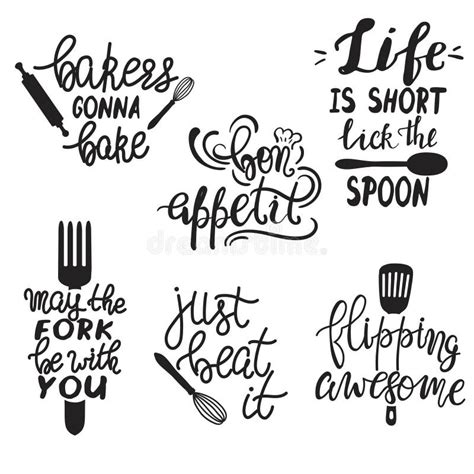 bakers
GONNA
bake
Life
IS SHORT
lick the
SPOON
bon
appetit
may the
FORK
be with
YOU
just
beat
it
flipping
awesome
dreamstime